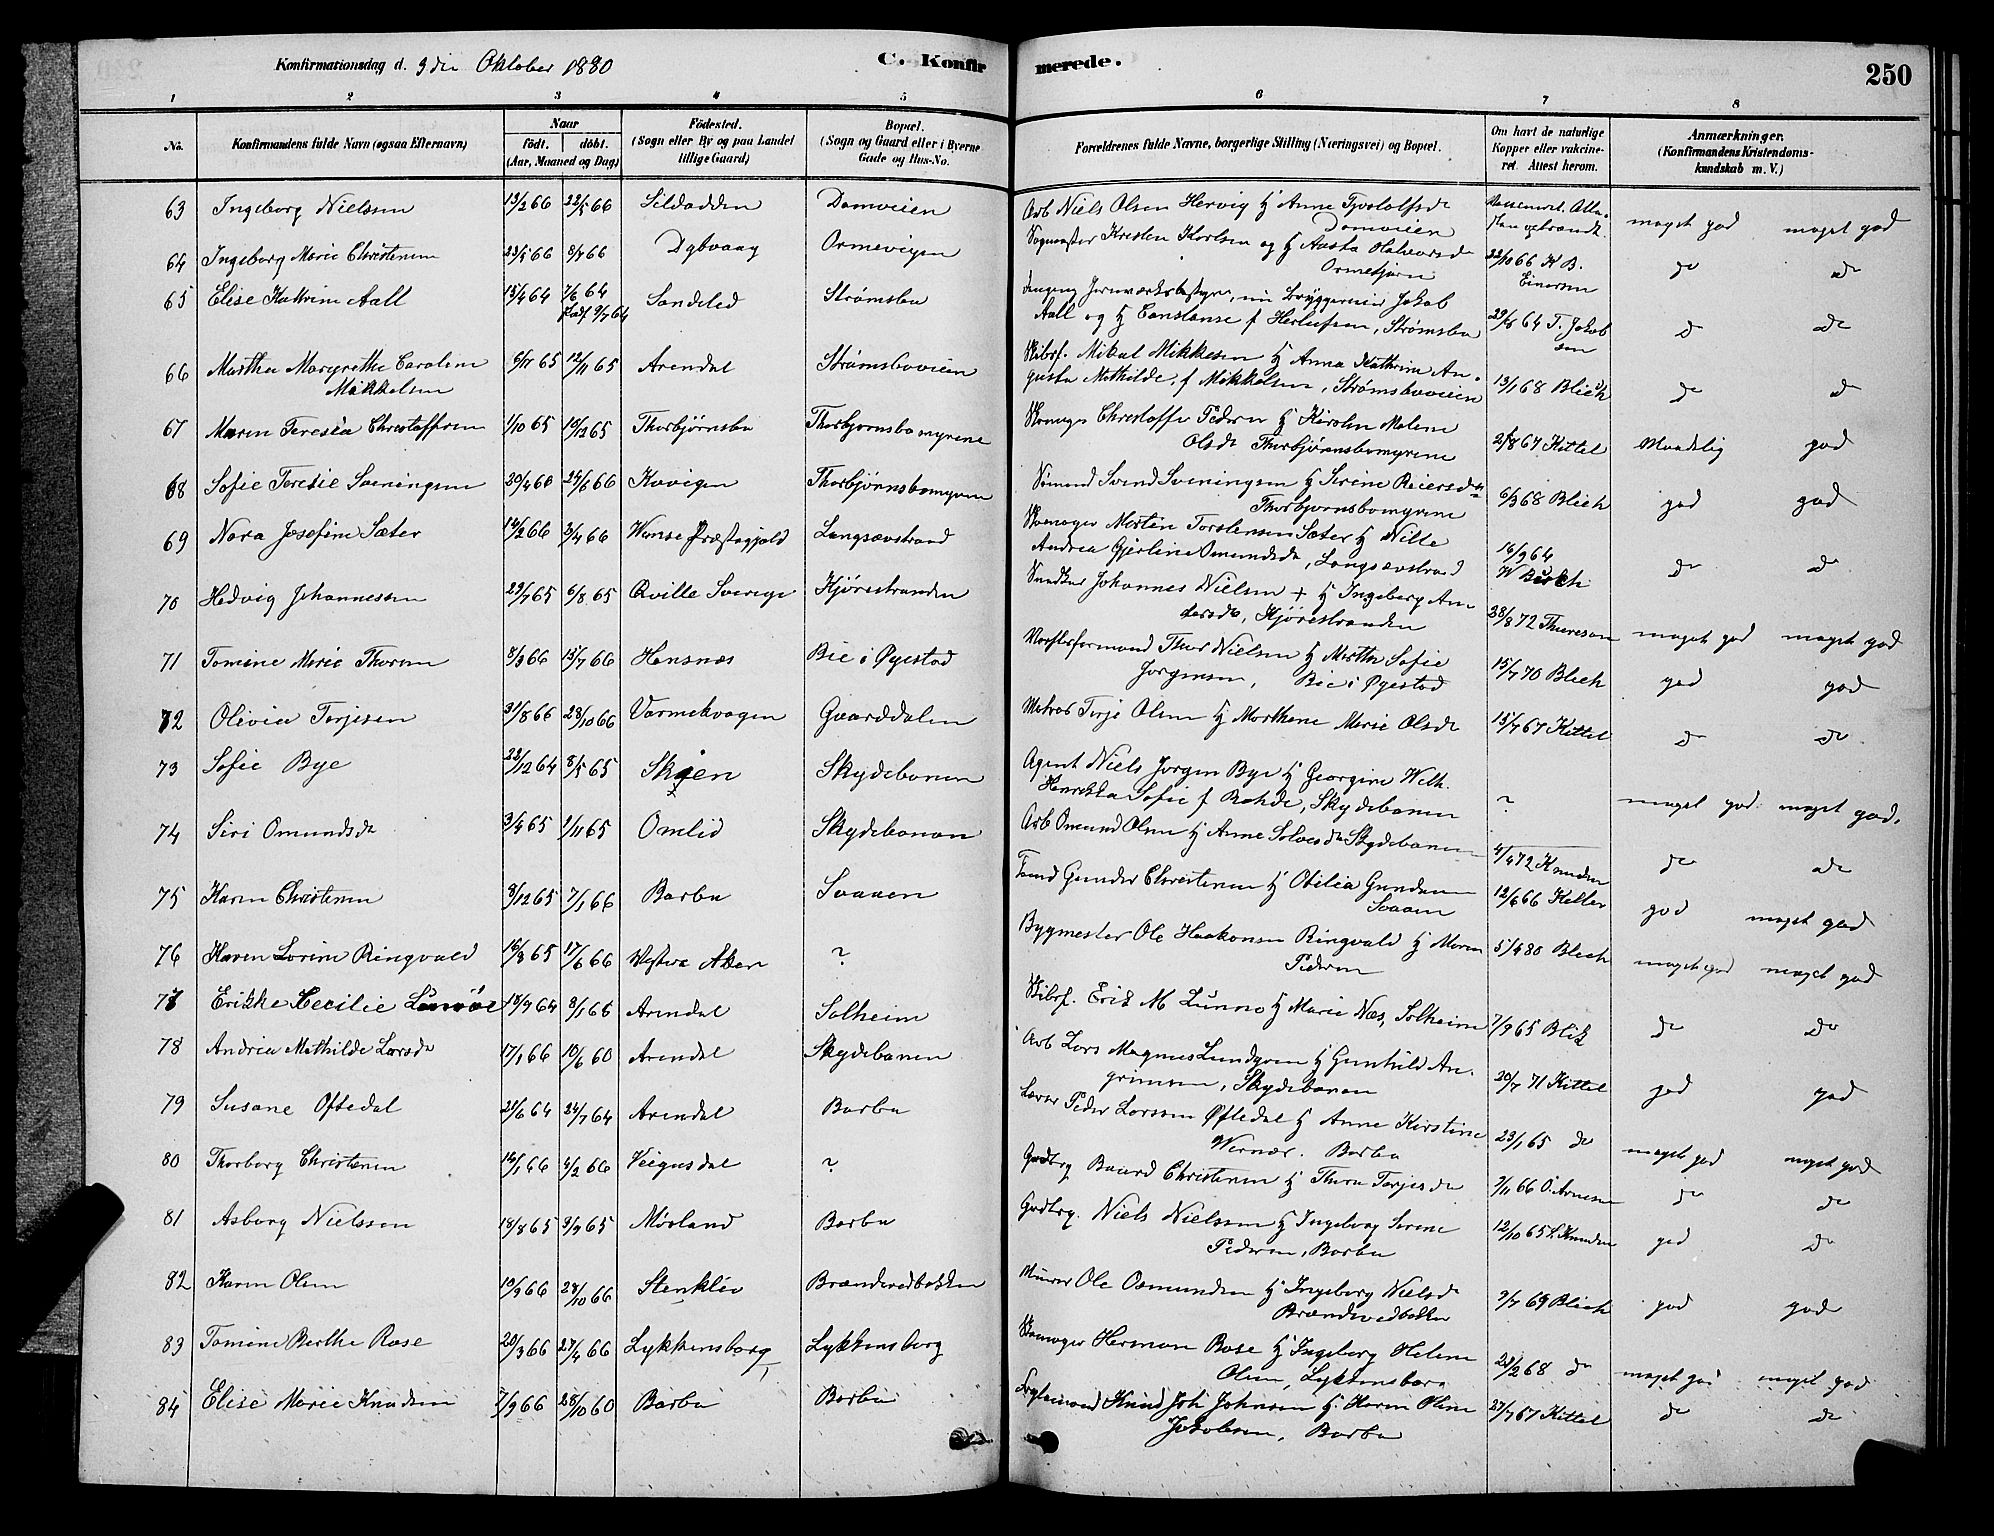 Konfirmationsdag d. 3die Oktober 1880
C. Konfirmerede.
250
1 2 3 4 5 6 7 8
No.
Konfirmandens fulde Navn (ogsaa Efternavn)
Naar
födt. döbt.
(Aar, Maaned og Dag)
Födested.
(Sogn eller By og paa Landet tillige Gaard)
Bopæl.
(Sogn og Gaard eller i Byerne Gade og Hus-No.
Forældrenes fulde Navne, borgerlige Stilling (Næringsvei) og Bopæl.
Om havt de naturlige Kopper eller vakcineret. Attest herom.
Anmærkninger.
(Konfirmandens Kristendomskundskab m. V.)
63 Ingeborg Nielsen 13/2 66 22/5 66 Sildodden Domveien Arb Niels Olsen Hervig H Anne Domveien meget god meget god
64 Ingeborg Marie Christensen 23/5 66 8/7 66 Dybvaag Ormevigen Kristen Karlsen og H Aasta Halvorsdr 22/10 66 K B. Einersen do do
65 Elise Kathrine Aall 15/4 64 7/6 64 Søndeled Strømsbu Jakob Aall og H Constanse f Herlofsen, Strømsbu 29/8 64 T. Jakobsen do do
66 Martha Margrethe Caroline Mikkelsen 6/11 65 12/11 65 Arendal Strømsboveien Skibsf. Mikal Mikkelsen H Anna Kathrine Augusta Mathilde, f Mikkelsen, Strømsboveien 13/1 68 Blich do do
67 Maren Teresia Christoffersen 1/10 65 10/12 65 Thorbjørnsbu Thorbjørnsbomyrene Skomager Christoffer Pedersen H Karoline Malene Olsdr Thorbjørnsbomyrene 2/8 67 Kittel Maadelig god
68 Sofie Teresie Sveningsen 20/4 66 24/6 66 Kovigen Thorbjørnsbomyrene Sømand Svend Sveningsen H Serine Reiersdr Thorbjørnsbomyrene 6/3 68 Blich god god
69 Nora Josefine Sæter 14/2 66 3/4 66 Vanse Præstegjeld Langsævstrand Skomager Morten Torstensen Sæter H Nille Andrea Gjerline Omundsdr, Langsævstrand 16/9 64 do do
70 Hedvig Johannessen 29/7 65 6/8 65 Qville Sverige Kjørrestranden Johannes Nielsen + H Ingeborg Andersdr, Kjørrestranden 28/8 72 Thuresen meget god meget god
71 Tomine Marie Thorsen 8/3 66 15/7 66 Hensnæs Bie i Øyestad Værftsformand Thor Nielsen H Marthe Sofie Jørgensen, Bie i Øyestad 15/7 70 Blich god god
72 Olivia Terjesen 31/8 66 28/10 66 Varmekvogen Gaarddalen Matros Terje Olsen H Marthene Marie Olsdr 15/7 67 Kittel do do
73 Sofie Bye 22/12 64 8/5 65 Skien Skydebanen Agent Niels Jørgen Bye H Georgine Wilh. Henrikka Sofie f Rohde, Skydebanen ? meget god meget god.
74 Siri Omundsdr 3/4 65 2/11 65 Omlid Skydebanen Arb Omund Olsen H Anne Solvesdr Skydebanen 4/4 72 Knudsen do do
75 Karen Christensen 8/12 65 7/1 66 Barbu Saaaen Tømd Gunder Christensen H Otilia Gundersen 12/6 66 Keller god meget god
76 Karen Lovine Ringvold 16/8 65 17/6 66 Vestre Aker ? Bygmester Ole Haakonsen Ringvold H Maren Pedersen 5/4 80 Blech meget god meget god
77 Erikke Cecilie Lunøe 18/7 64 8/1 65 Arendal Solheim Skibsf. Erik M Lunno H Marie Næs, Solheim 7/9 65 Blik do do
78 Andrea Mathilde Larsdr 17/1 66 10/6 60 Arendal Skydebanen Arb Lars Magnus Lundgren H Gunhild Angrimsen, Skydebanen 20/7 71 Kittel god god
79 Susane Oftedal 21/6 64 24/7 64 Arendal Barbu Lærer Peder Larssen Oftedal H Anne Kirstine Wernær. Barbu 23/1 65 do meget god meget god
80 Thorborg Christensen 16/1 66 4/2 66 Veigusdal ? Gaardbrg Baard Christensen H Thora Terjesdr 7/11 66 O. Arnesen do do
81 Asborg Nielssen 18/8 65 3/9 65 Møsland Barbu Gaardbrg. Niels Nielssen H Ingeborg Serene Pedersen, Barbu 12/10 65 S. Knudsen god do
82 Karen Olsen 10/9 66 28/10 66 Stenkløv Brændevedbakken Murer Ole Osmundsen H Ingeborg Nielsdr Brændevedbakken 3/7 69 Blich god god
83 Tomine Berthe Rose 20/3 66 27/4 66 Lykkensborg Lykkensborg Skomager Herman Rose H Ingeborg Helene Olsen, Lykkensborg 24/2 68 do meget god meget god
84 Elise Marie Knudsen 7/9 66 28/10 60 Barbu Barbu Knud Joh Johnsen H Karen Oline Jakobsen, Barbu 27/7 67 Kittel do do